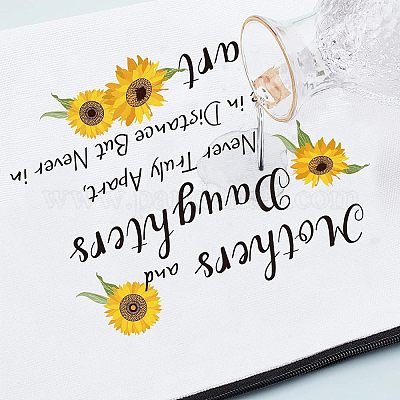 Mothers and
Daughters
Never Truly Apart,
in Distance But Never in
art